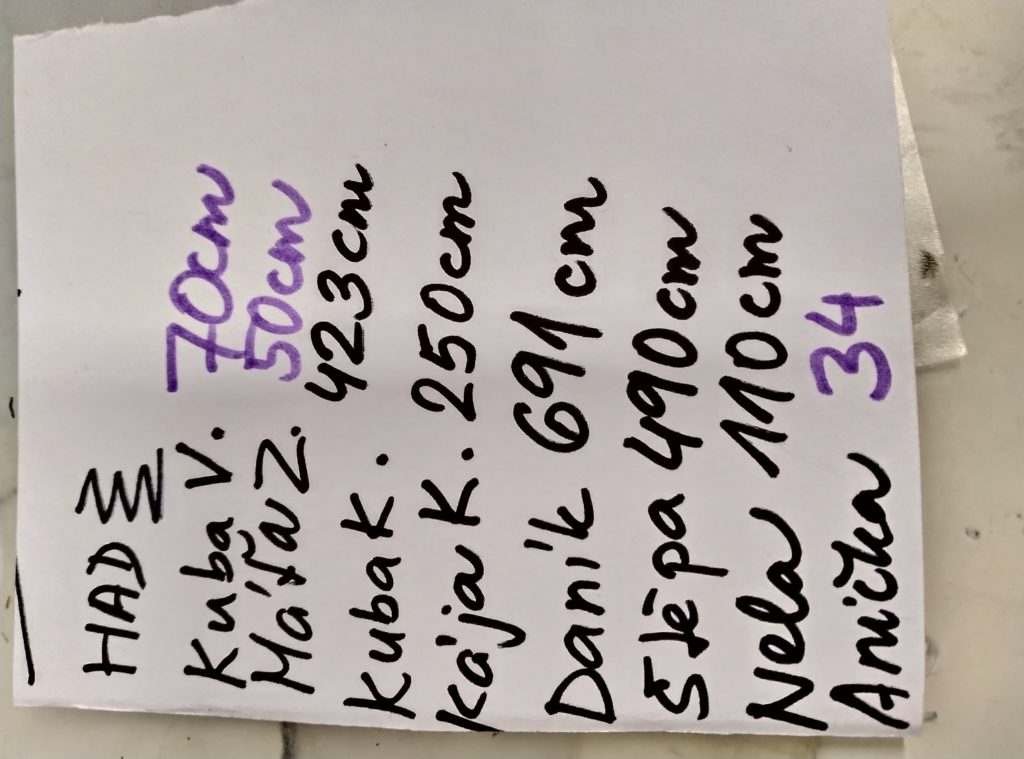 HAD
Kuba V. 70cm
Máťa Z. 50cm
Kuba K. 423cm
Kája K. 250cm
Daník 691 cm
Štěpa 490cm
Nela 110cm
Anička 34